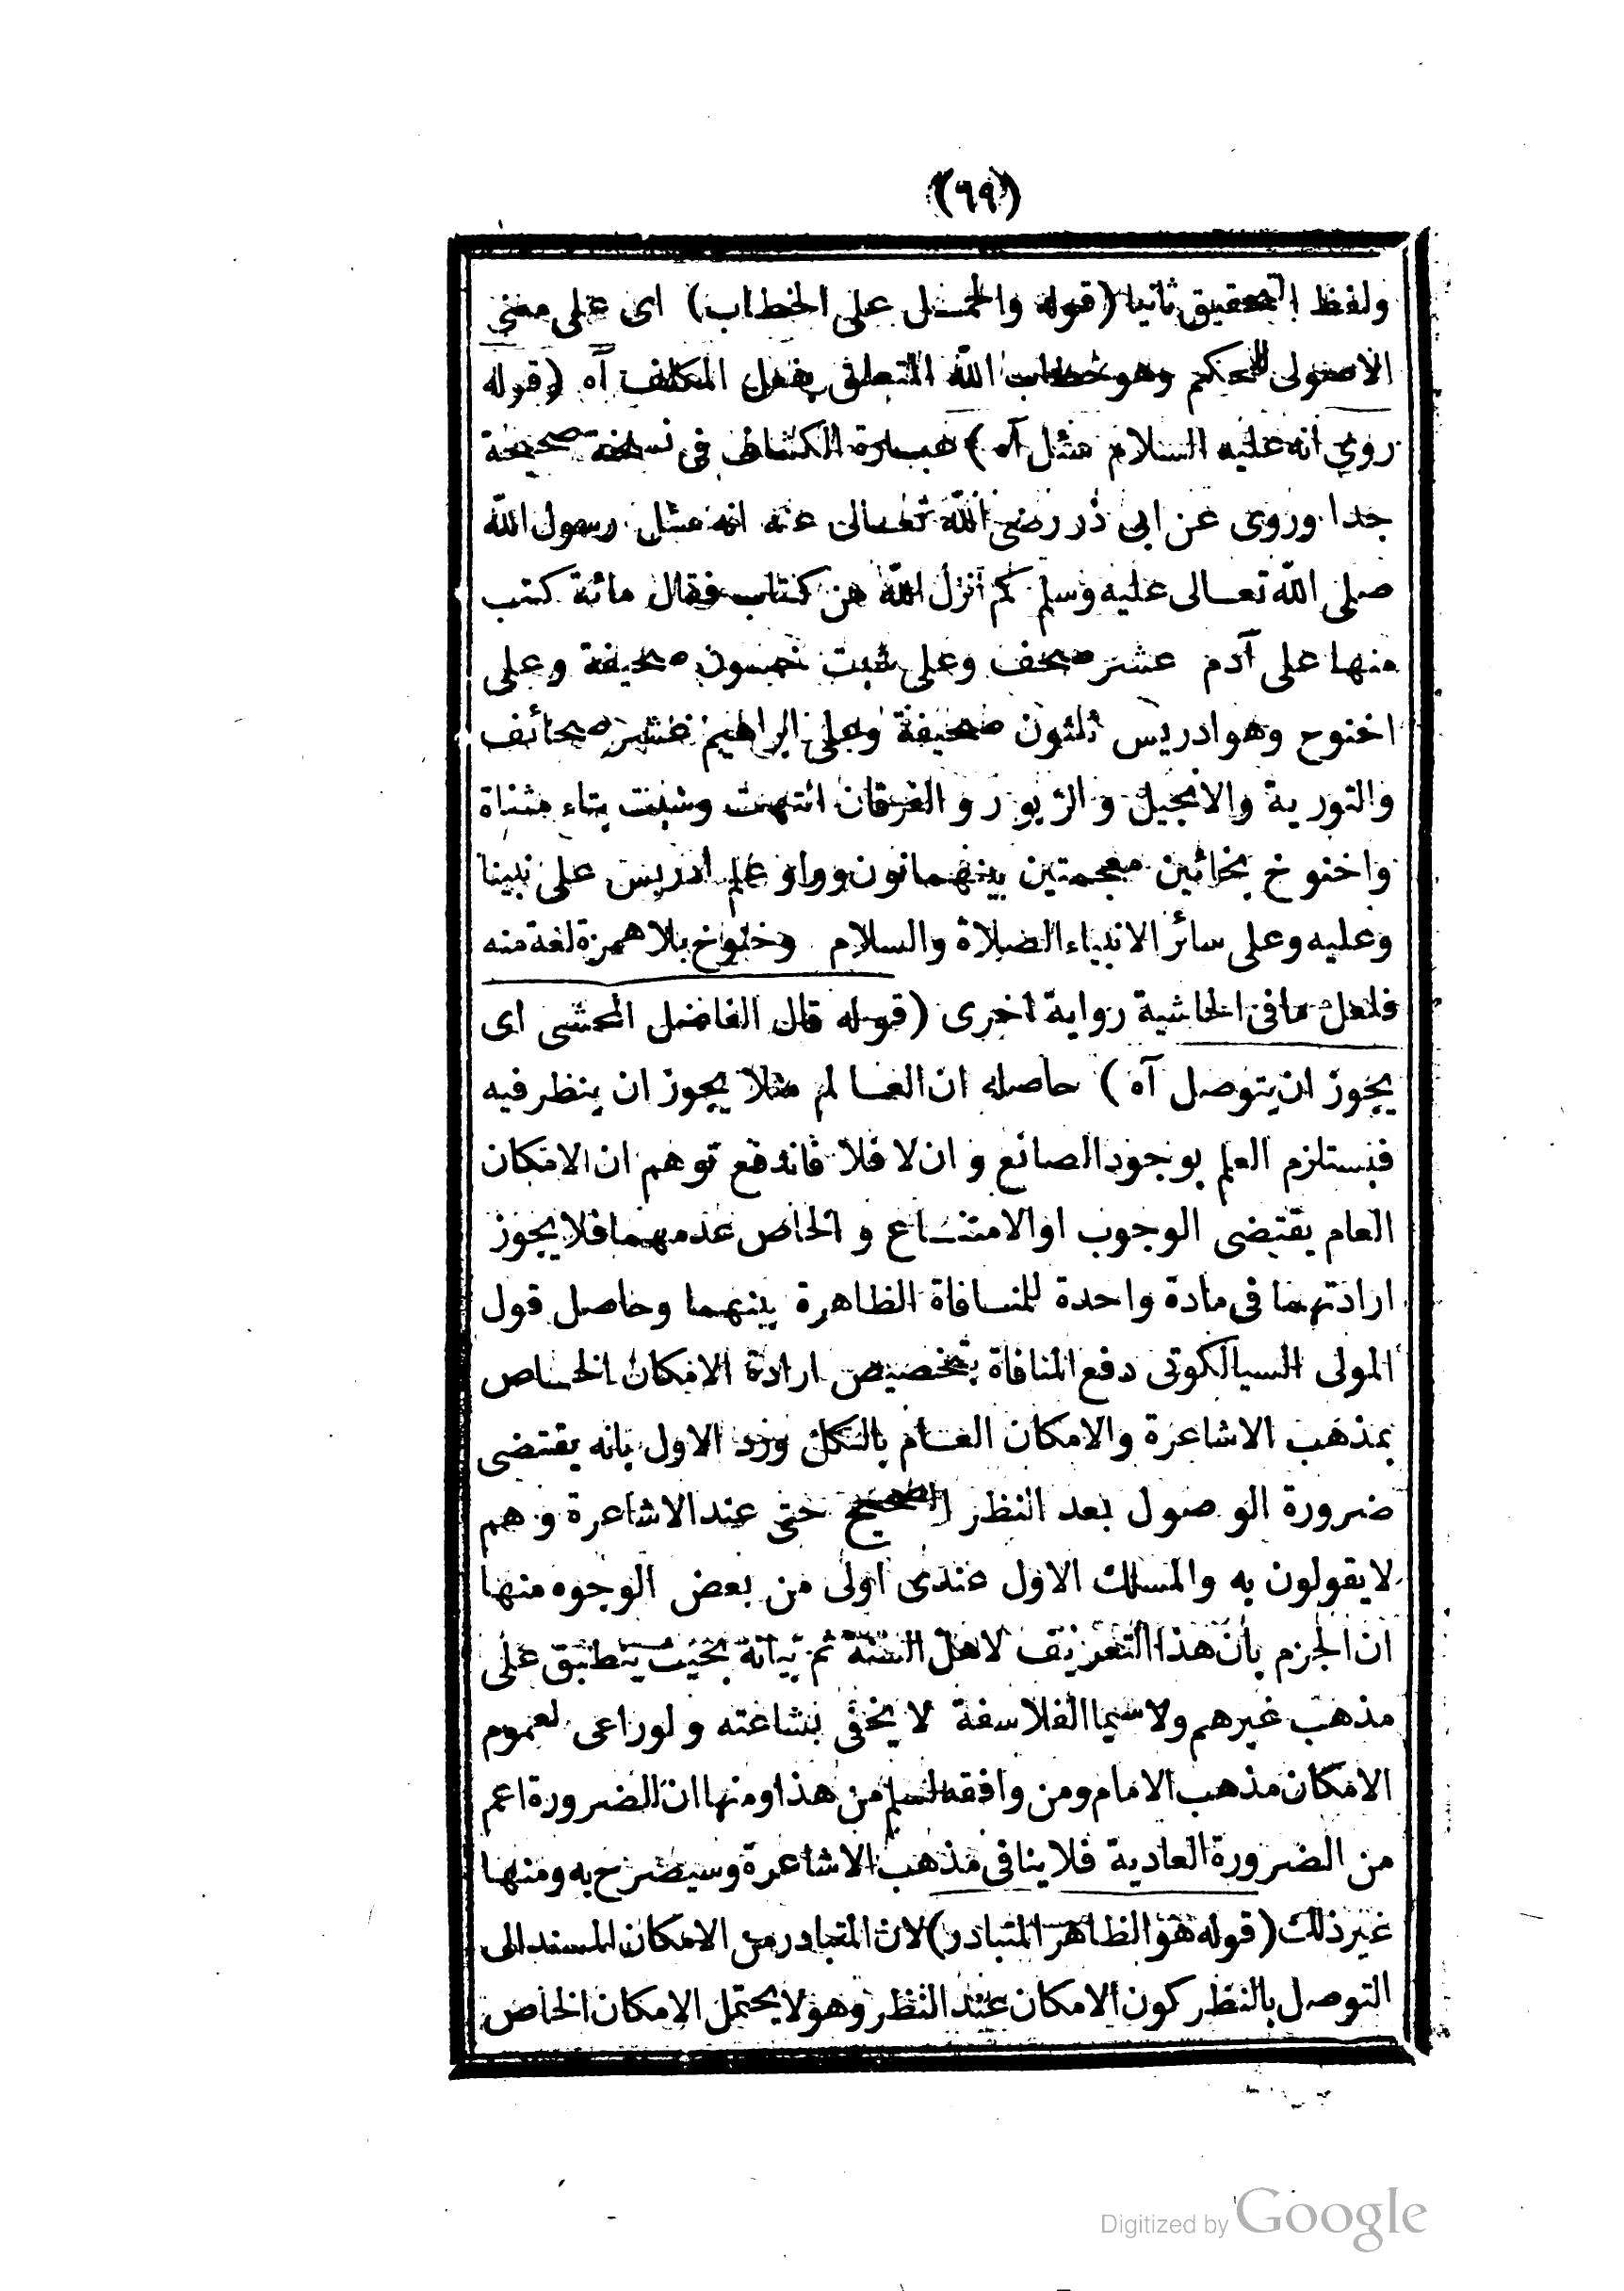 (٦٩)
ولفظ التحقيق ثانيا (قوله والحمل على الخطاب) اى على معنى
الاصولى للحكم وهو خطاب الله المتعلق بفعل المكلف آه (قوله
روى انه عليه السلام سئل آه) عبارة الكشاف فى نسخة صحيحة
جدا وروى عن ابى ذر رضى الله تعالى عنه انه سئل رسول الله
صلى الله تعالى عليه وسلم كم انزل الله من كتاب فقال مائة كتب
منها على آدم عشر صحف وعلى شيت خمسون صحيفة وعلى
اخنوح وهو ادريس ثلثون صحيفة وعلى ابراهيم عشر صحائف
والتورية والانجيل والزبور والفرقان انتهت وشيت بتاء مثناة
واخنوخ بخائين معجمتين بينهما نون وواو علم ادريس على نبينا
وعليه وعلى سائر الانبياء الصلاة والسلام وخنوخ بلا همزة لغة منه
فلعل ما فى الحاشية رواية اخرى (قوله قال الفاضل المحشى اى
يجوز ان يتوصل آه) حاصله ان العالم مثلا يجوز ان ينظر فيه
فيستلزم العلم بوجود الصانع وان لا فلا فاندفع توهم ان الامكان
العام يقتضى الوجوب او الامتناع والخاص عدمهما فلا يجوز
ارادتهما فى مادة واحدة للمنافاة الظاهرة بينهما وحاصل قول
المولى السيالكوتى دفع المنافاة بتخصيص ارادة الامكان الخاص
بمذهب الاشاعرة والامكان العام بالكل ورد الاول بانه يقتضى
ضرورة الوصول بعد النظر الصحيح حتى عند الاشاعرة وهم
لا يقولون به والمسلك الاول عندى اولى من بعض الوجوه منها
ان الجزم بان هذا التعريف لاهل السنة ثم بيانه بحيث ينطبق على
مذهب غيرهم ولا سيما الفلاسفة لا يخفى بشاعته ولو راعى لعموم
الامكان مذهب الامام ومن وافقه لسلم من هذا ومنها ان الضرورة اعم
من الضرورة العادية فلا ينافى مذهب الاشاعرة وسيصرح به ومنها
غير ذلك (قوله هو الظاهر المتبادر) لان المتبادر من الامكان المسند الى
التوصل بالنظر كون الامكان عند النظر وهو لا يحتمل الامكان الخاص
Digitized by Google